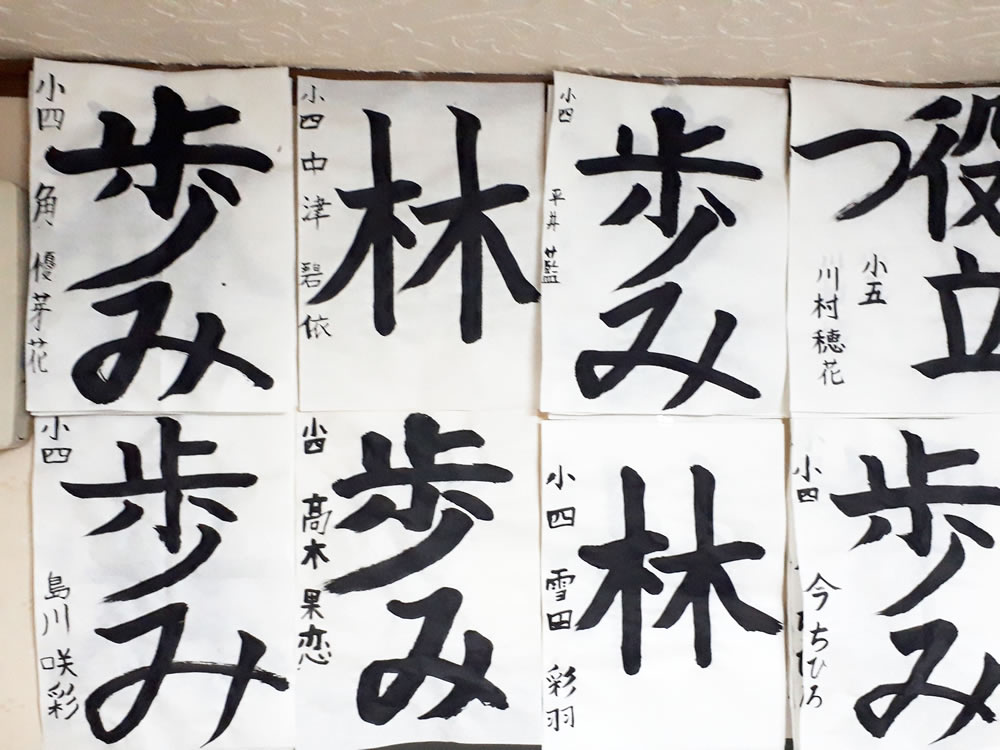 歩み
小四 角 優芽花
林
小四 中津 碧依
歩み
小四 平井 藍
役立つ
小五
川村穂花
歩み
小四 島川 咲彩
歩み
小四 高木 果恋
林
小四 雪田 彩羽
歩み
小四 今ちひろ